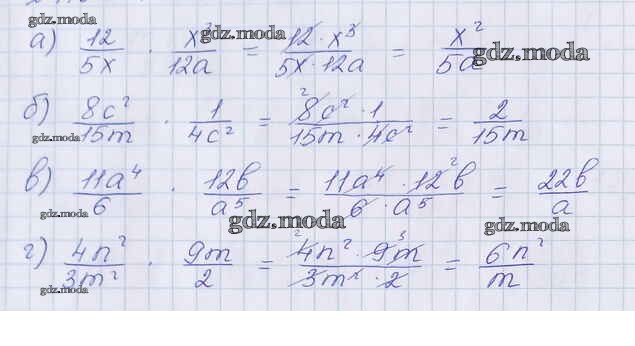 gdz.moda
а) 12/5x · x³/12a = 12 · x³/5x · 12a = x²/5a
gdz.moda gdz.moda
б) 8c²/15m · 1/4c² = ²8c² · 1/15m · 4c² = 2/15m
gdz.moda
в) 11a⁴/6 · 12b/a⁵ = 11a⁴ · 12² b/6 · a⁵ = 22b/a
gdz.moda gdz.moda gdz.moda
г) 4n²/3m² · 9m/2 = ²4n² · 9³m/3m² · 2 = 6n²/m
gdz.moda